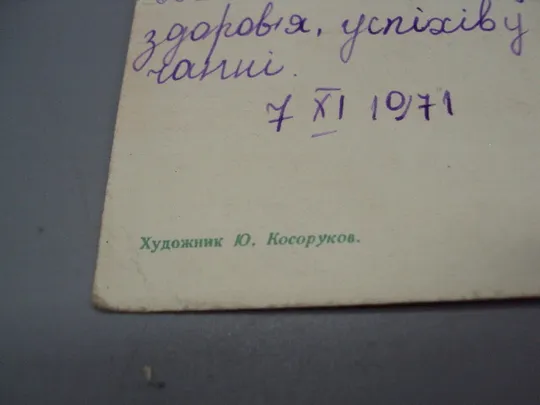 здоров'я, успіхів у
чанні.
7 XI 1971
Художник Ю. Косоруков.